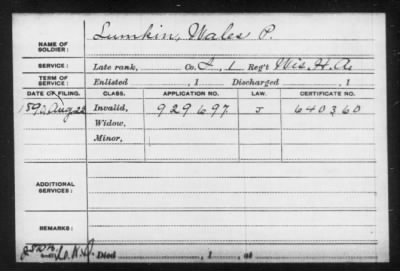 NAME OF SOLDIER: Lumkin, Wales P.
SERVICE: Late rank, Co. I, 1 Reg't Wis. H.A.
TERM OF SERVICE: Enlisted , 1 Discharged , 1
DATE OF FILING. CLASS. APPLICATION NO. LAW. CERTIFICATE NO.
1890, Aug 22 Invalid, 929697 J 640360
Widow,
Minor,
ADDITIONAL SERVICES:
REMARKS:
Died , 1 , at